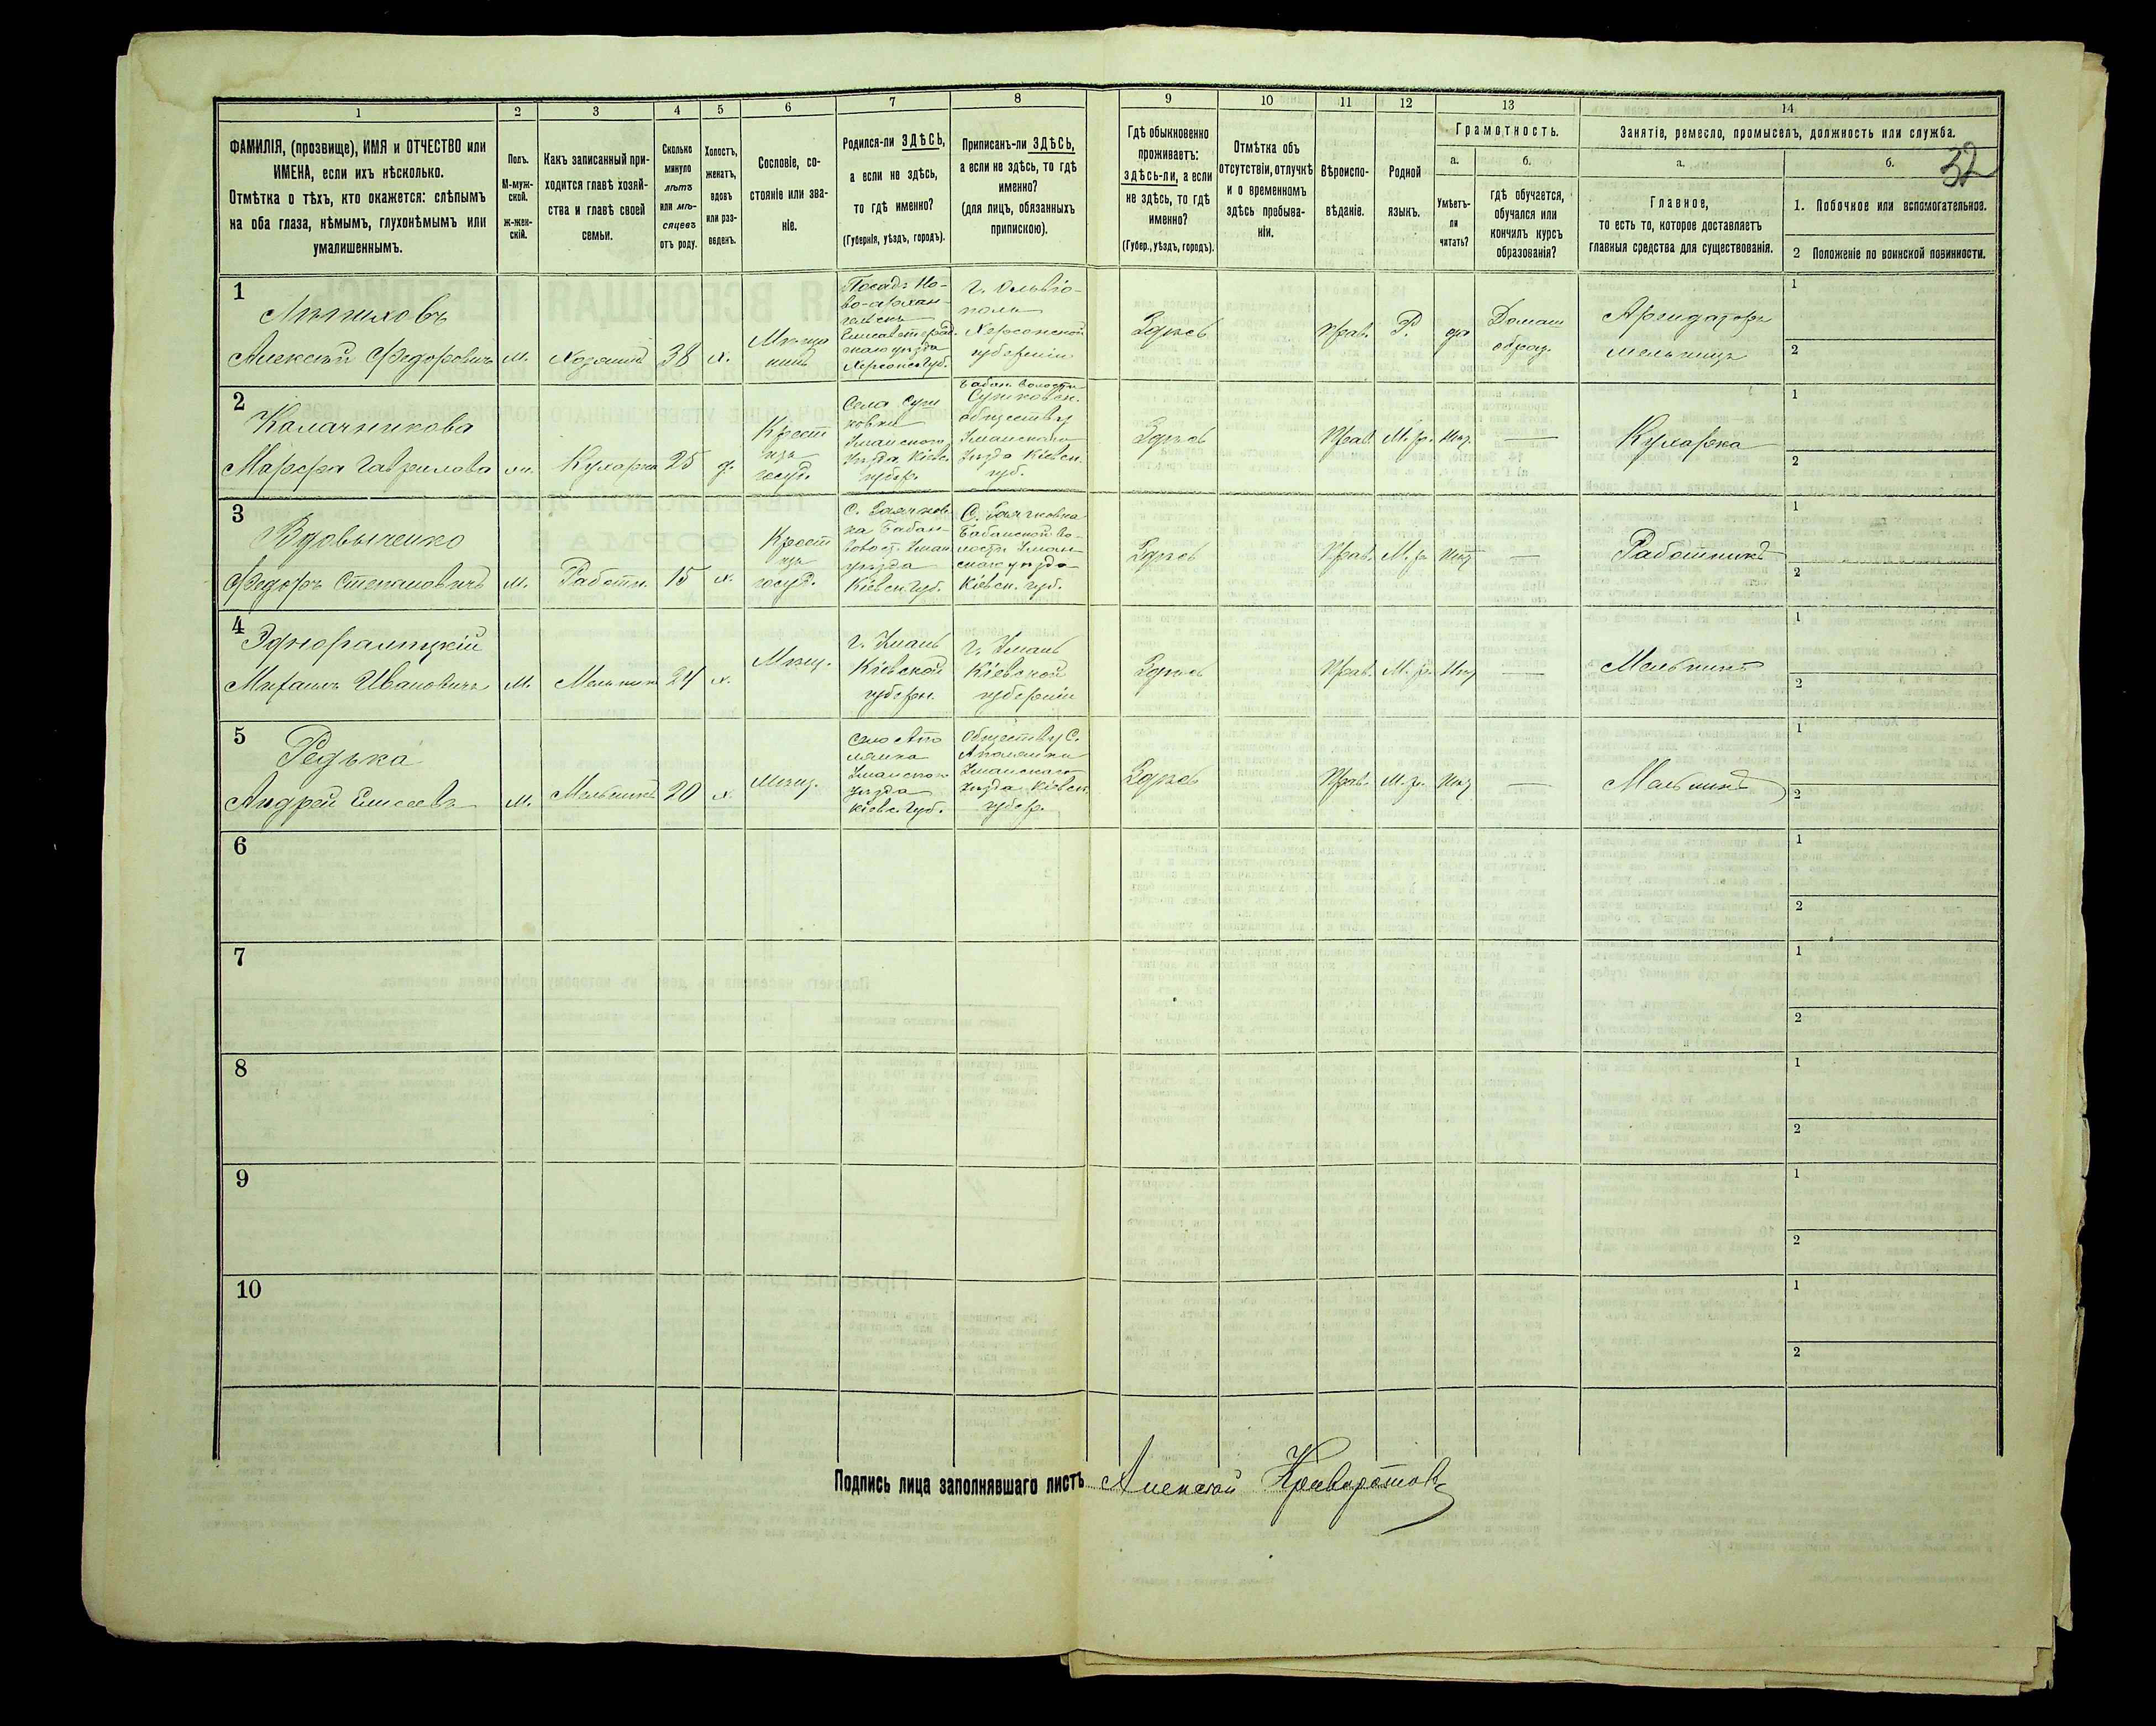 1 2 3 4 5 6 7 8 9 10 11 12 13 14
ФАМИЛІЯ, (прозвище), ИМЯ и ОТЧЕСТВО или
ИМЕНА, если ихъ нѣсколько.
Отмѣтка о тѣхъ, кто окажется: слѣпымъ
на оба глаза, нѣмымъ, глухонѣмымъ или
умалишеннымъ.
Полъ.
М-муж-
ской.
ж-жен-
скій.
Какъ записанный при-
ходится главѣ хозяй-
ства и главѣ своей
семьи.
Сколько
минуло
лѣтъ
или мѣ-
сяцевъ
отъ роду.
Холостъ,
женатъ,
вдовъ
или раз-
веденъ.
Сословіе, со-
стояніе или зва-
ніе.
Родился-ли ЗДѢСЬ,
а если не здѣсь,
то гдѣ именно?
(Губернія, уѣздъ, городъ).
Приписанъ-ли ЗДѢСЬ,
а если не здѣсь, то гдѣ
именно?
(для лицъ, обязанныхъ
припискою).
Гдѣ обыкновенно
проживаетъ:
здѣсь-ли, а если
не здѣсь, то гдѣ
именно?
(Губер., уѣздъ, городъ).
Отмѣтка объ
отсутствіи, отлучкѣ
и о временномъ
здѣсь пребыва-
ніи.
Вѣроиспо-
вѣданіе.
Родной
языкъ.
Грамотность.
а.
Умѣетъ-
ли
читать?
б.
гдѣ обучается,
обучался или
кончилъ курсъ
образованія?
Занятіе, ремесло, промыселъ, должность или служба.
а.
Главное,
то есть то, которое доставляетъ
главныя средства для существованія.
б.
32
1. Побочное или вспомогательное.
2 Положеніе по воинской повинности.
1
Алексѣй Федоровичъ
м.
Хозяинъ
38
х.
Мѣща
нинъ
Посадъ Но-
во-Архан-
гельскъ
Елисаветград-
скаго уѣзда
Херсонс. Губ.
г. Ольвіо-
поль
Херсонской
губерніи
Здѣсь
Прав.
Р.
да
Домаш
образ.
Арендаторъ
мельницы
1
2
2
Калачникова
Марфа Гаврилова
ж.
Кухарка
25
д.
Крест
изъ
госуд.
Села Суш
ковки
Уманского
уѣзда, Кіевс.
губер.
Бабан. волости
Сушковск.
обществу
Уманскаго
уѣзда Кіевск.
губ.
Здѣсь
Прав.
М. р.
Нѣт
—
Кухарка
1
2
3
Вдовыченко
Федоръ Степановичъ
м.
Работн.
15
х.
Крест
изъ
госуд.
уѣзда
Кіевск. Губ.
Бабанской во-
лости Уман-
скаго уѣзда
Кіевск. губ.
Здѣсь
Прав.
М. р.
Нѣт
—
Работникъ
1
2
4
Михаилъ Ивановичъ
М.
Мельникъ
24
х.
Мѣщ.
г. Умань
Кіевской
губерн.
г. Умань
Кіевской
губерніи
Здѣсь
Прав.
М. р.
Нѣт
—
Мельникъ
1
2
5
Редька
Андрей Елисеевъ
м.
Мельникъ
20
х.
Мѣщ.
Село Апо
лянка
Уманского
уѣзда
Кіевс. Губ.
Обществу С.
Аполянки
Уманскаго
уѣзда, Кіевск.
губер.
Здѣсь
Прав.
М. р.
Нѣт
—
Мельникъ
1
2
6
1
2
7
1
2
8
1
2
9
1
2
10
1
2
Подпись лица заполнявшаго листъ Алексѣй